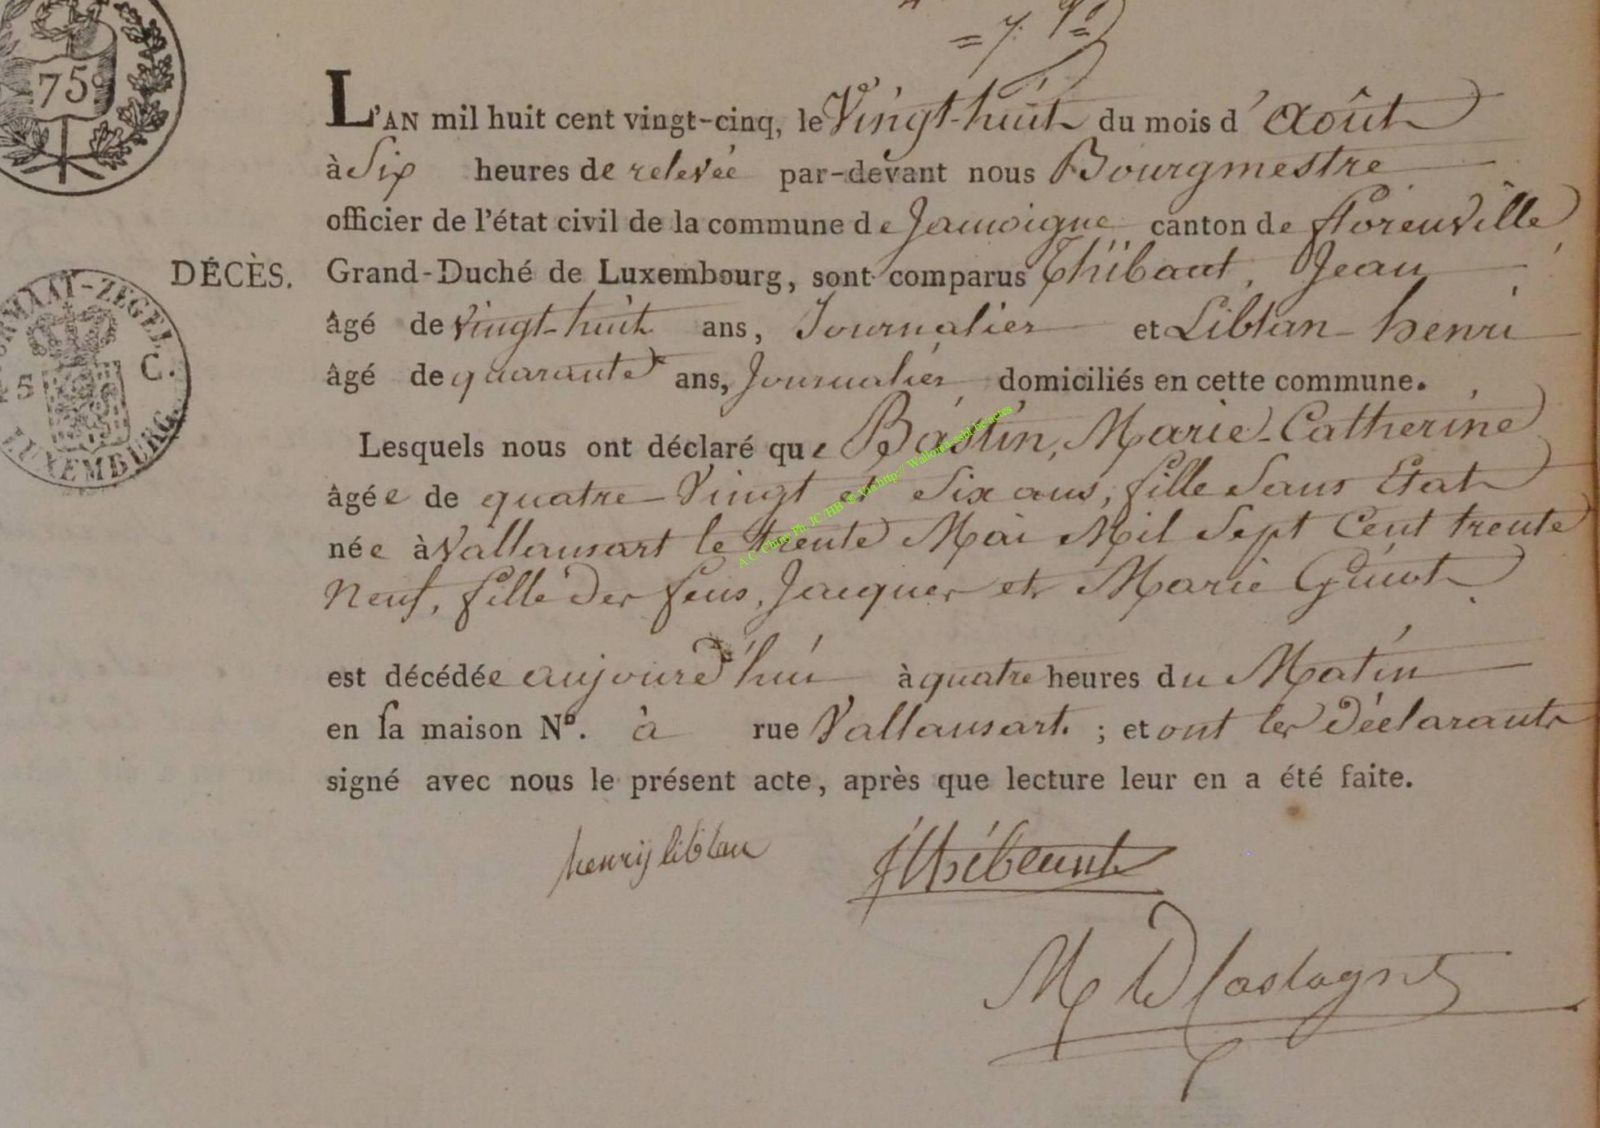 75c
= 7. 9 =
L'AN mil huit cent vingt-cinq, le Vingt-huit du mois d'Août
à Six heures de relevée par-devant nous Bourgmestre
officier de l'état civil de la commune de Jamoigne canton de florenville
DÉCÈS. Grand-Duché de Luxembourg, sont comparus Thibaut, Jean
âgé de vingt-huit ans, Journalier et Liblan henri
âgé de quarante ans, Journalier domiciliés en cette commune.
Lesquels nous ont déclaré que Bastin, Marie-Catherine
âgée de quatre-Vingt et Six ans, fille Sans Etat
née à Vallansart le trente Mai Mil Sept Cent trente
Neuf, fille des feus, Jacques et Marie Guiot
est décédée aujourd'hui à quatre heures du Matin
en sa maison Nº. à rue Vallansart. ; et ont les Déclarants
signé avec nous le présent acte, après que lecture leur en a été faite.
henrij liblan
JThibaut
ZEGEL
5 C.
LUXEMBURG